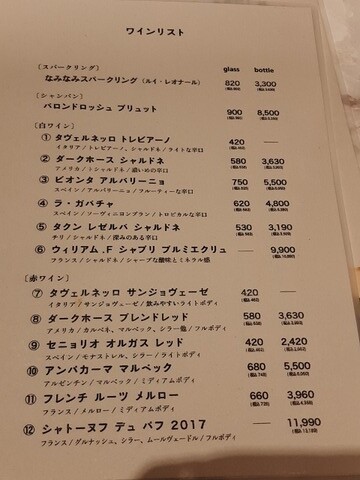 ワインリスト
glass bottle
〔スパークリング〕
なみなみスパークリング (ルイ・レオナール) 820 3,300
〔シャンパン〕
バロンドロッシュ ブリュット 900 8,500
〔白ワイン〕
① タヴェルネッロ トレビアーノ 420 ―
イタリア / トレビアーノ、シャルドネ / ライトな辛口
② ダークホース シャルドネ 580 3,630
アメリカ / シャルドネ / 濃いめの辛口
③ ビオンタ アルバリーニョ 750 5,500
スペイン / アルバリーニョ / フルーティーな辛口
④ ラ・ガバチャ 620 4,800
スペイン / ソーヴィニヨンブラン / トロピカルな辛口
⑤ タクン レゼルバ シャルドネ 530 3,190
チリ / シャルドネ / 深みのある辛口
⑥ ウィリアム.F シャブリ プルミエクリュ ― 9,900
フランス / シャルドネ / シャープな酸味とミネラル感
〔赤ワイン〕
⑦ タヴェルネッロ サンジョヴェーゼ 420 ―
イタリア / サンジョヴェーゼ / 飲みやすいライトボディ
⑧ ダークホース ブレンドレッド 580 3,630
アメリカ / カルベネ、マルベック、シラー他 / フルボディ
⑨ セニョリオ オルガス レッド 420 2,420
スペイン / モナストレル、シラー / ライトボディ
⑩ アンバカーマ マルベック 680 5,500
アルゼンチン / マルベック / ミディアムボディ
⑪ フレンチ ルーツ メルロー 660 3,960
フランス / メルロー / ミディアムボディ
⑫ シャトーヌフ デュ パフ 2017 ― 11,990
フランス / グルナッシュ、シラー、ムールヴェードル / フルボディ